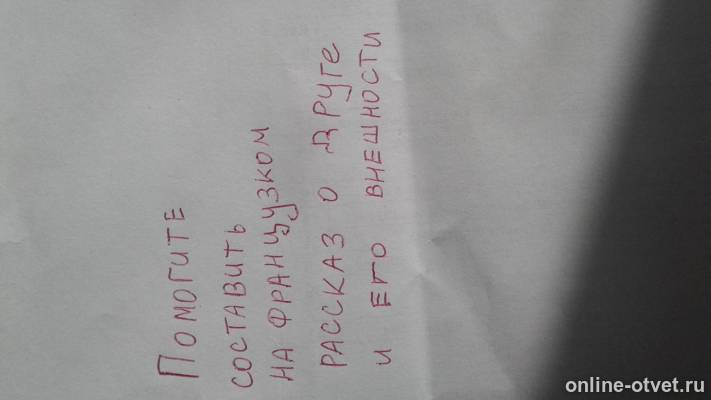 ПОМОГИТЕ
СОСТАВИТЬ
НА ФРАНЦУЗКОМ
РАССКАЗ О ДРУГЕ
И ЕГО ВНЕШНОСТИ
online-otvet.ru